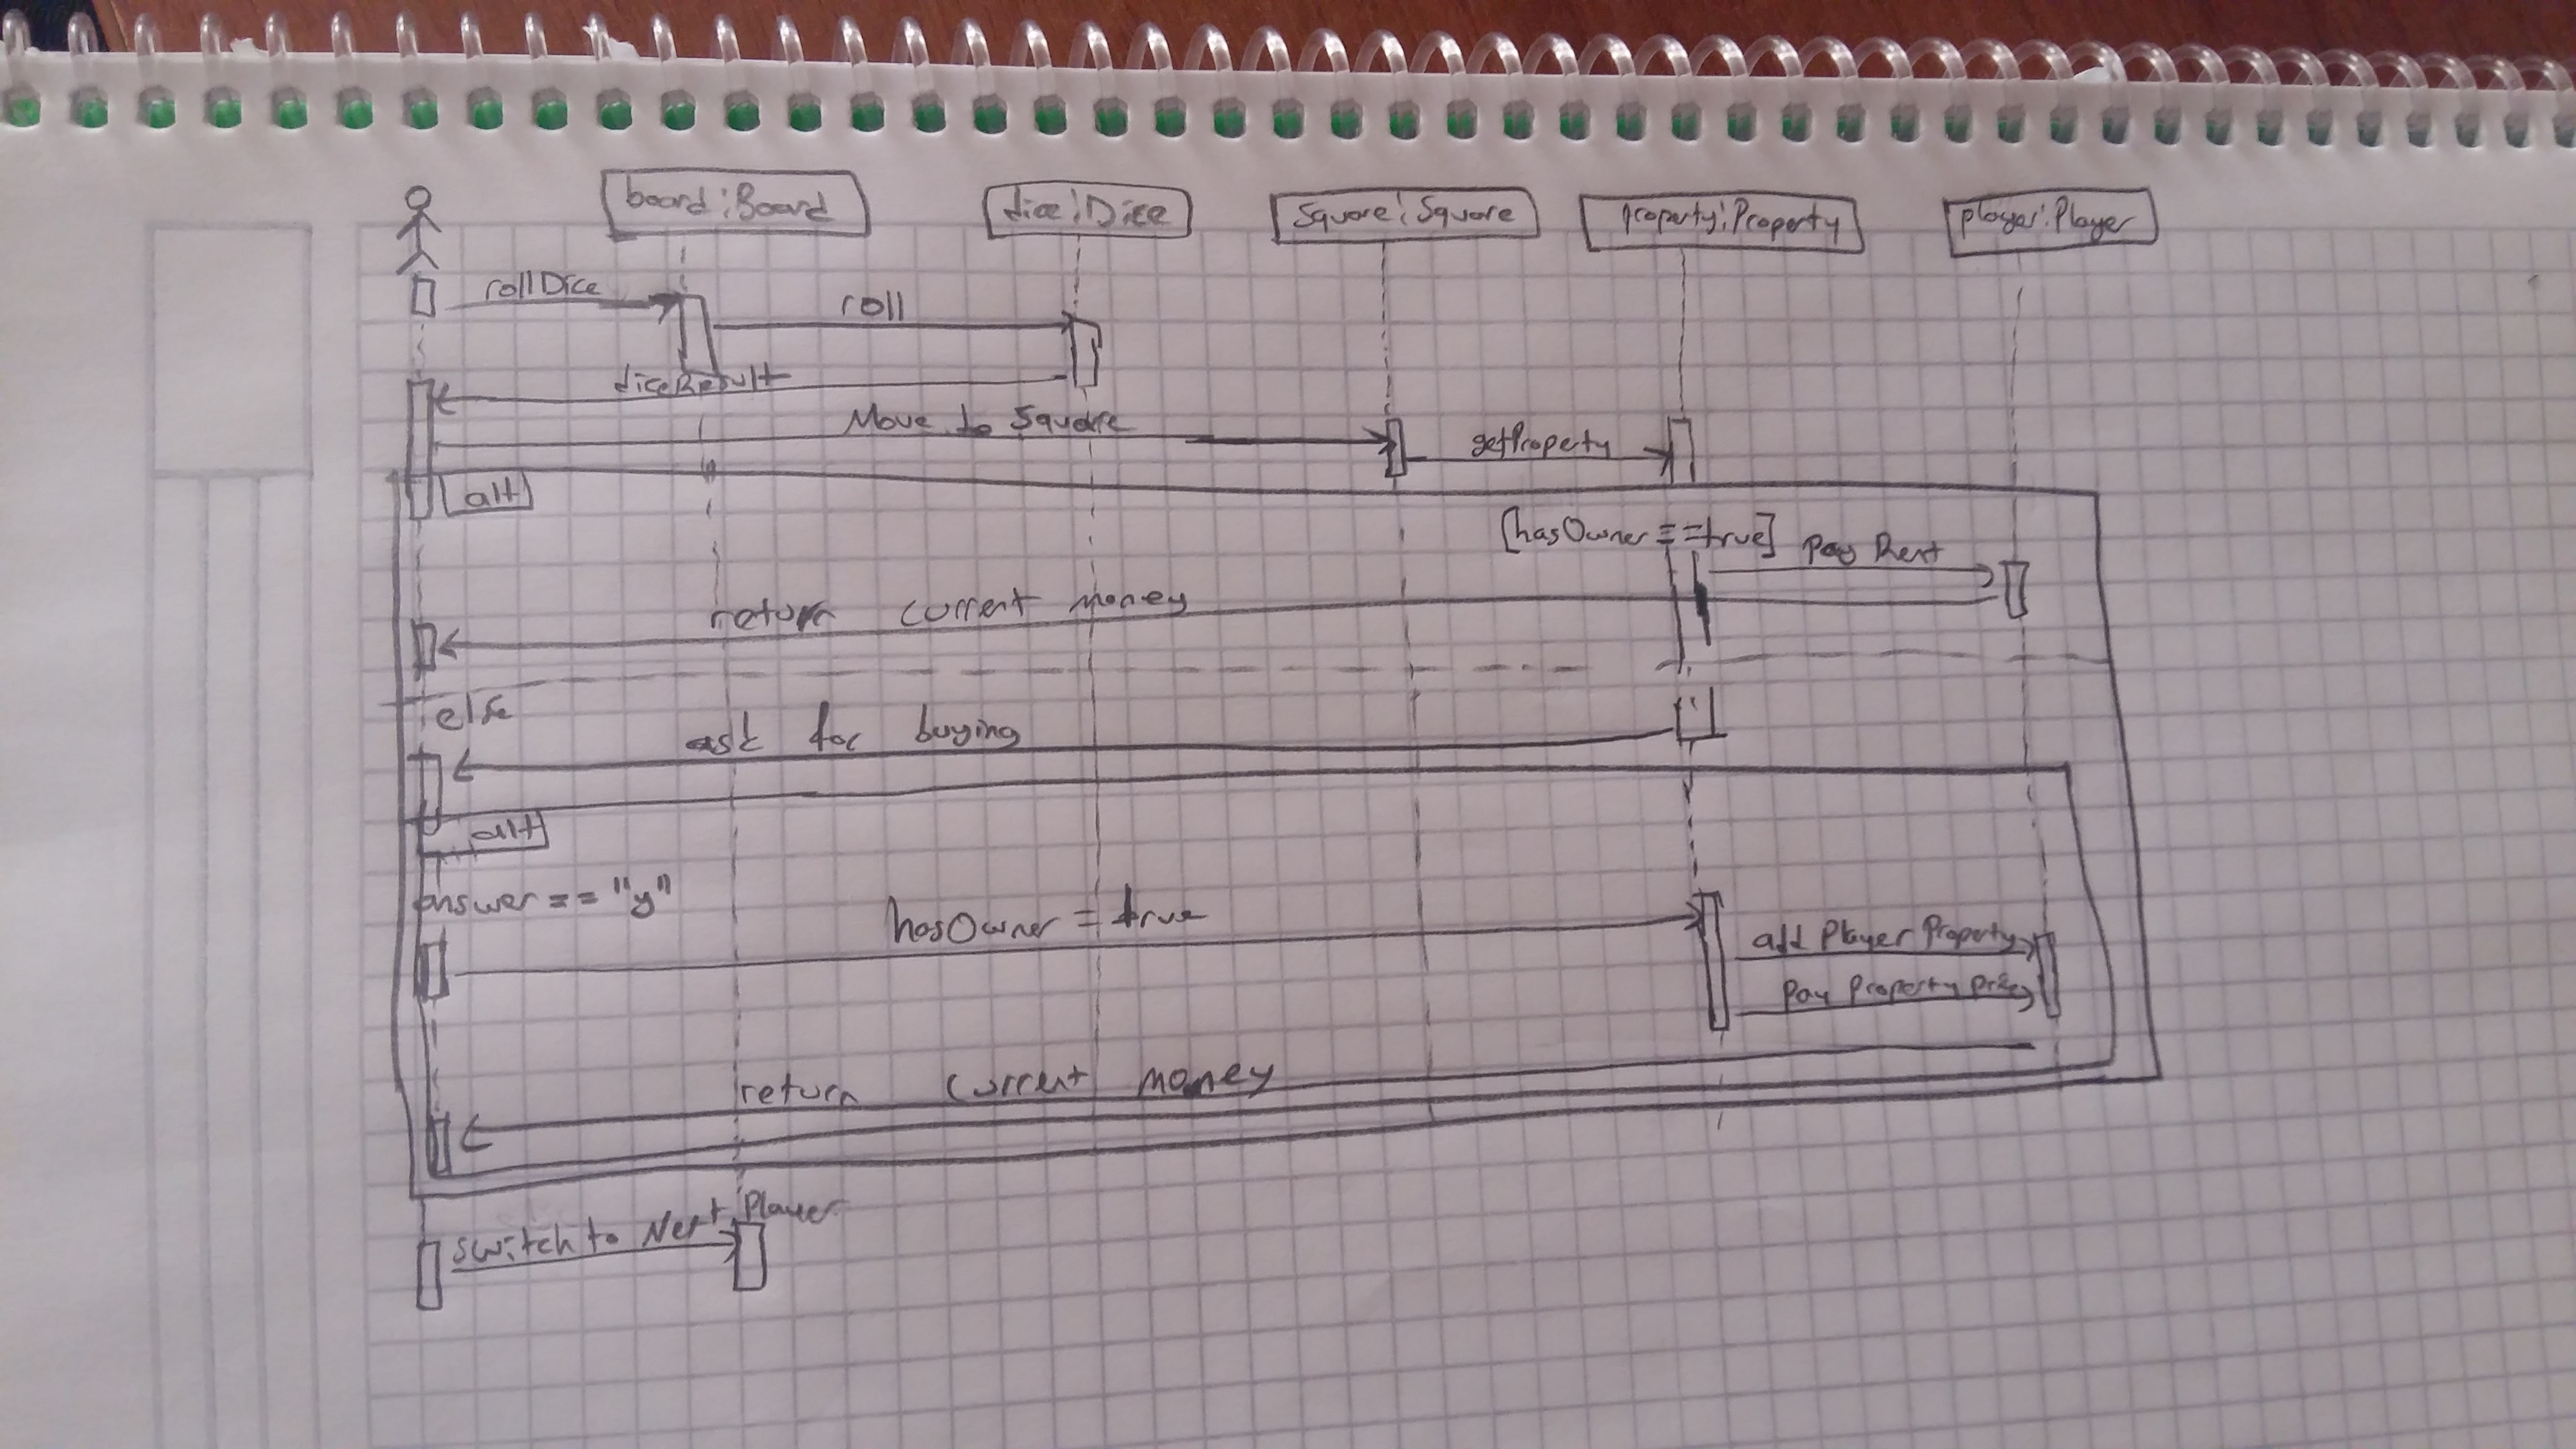 board:Board
dice:Dice
Square:Square
property:Property
player:Player
rollDice
roll
diceResult
Move to Square
getProperty
alt
[hasOwner==true]
Pay Rent
return current money
else
ask for buying
alt
answer=="y"
hasOwner=true
add Player Property
Pay Property price
return current money
switch to Next Player